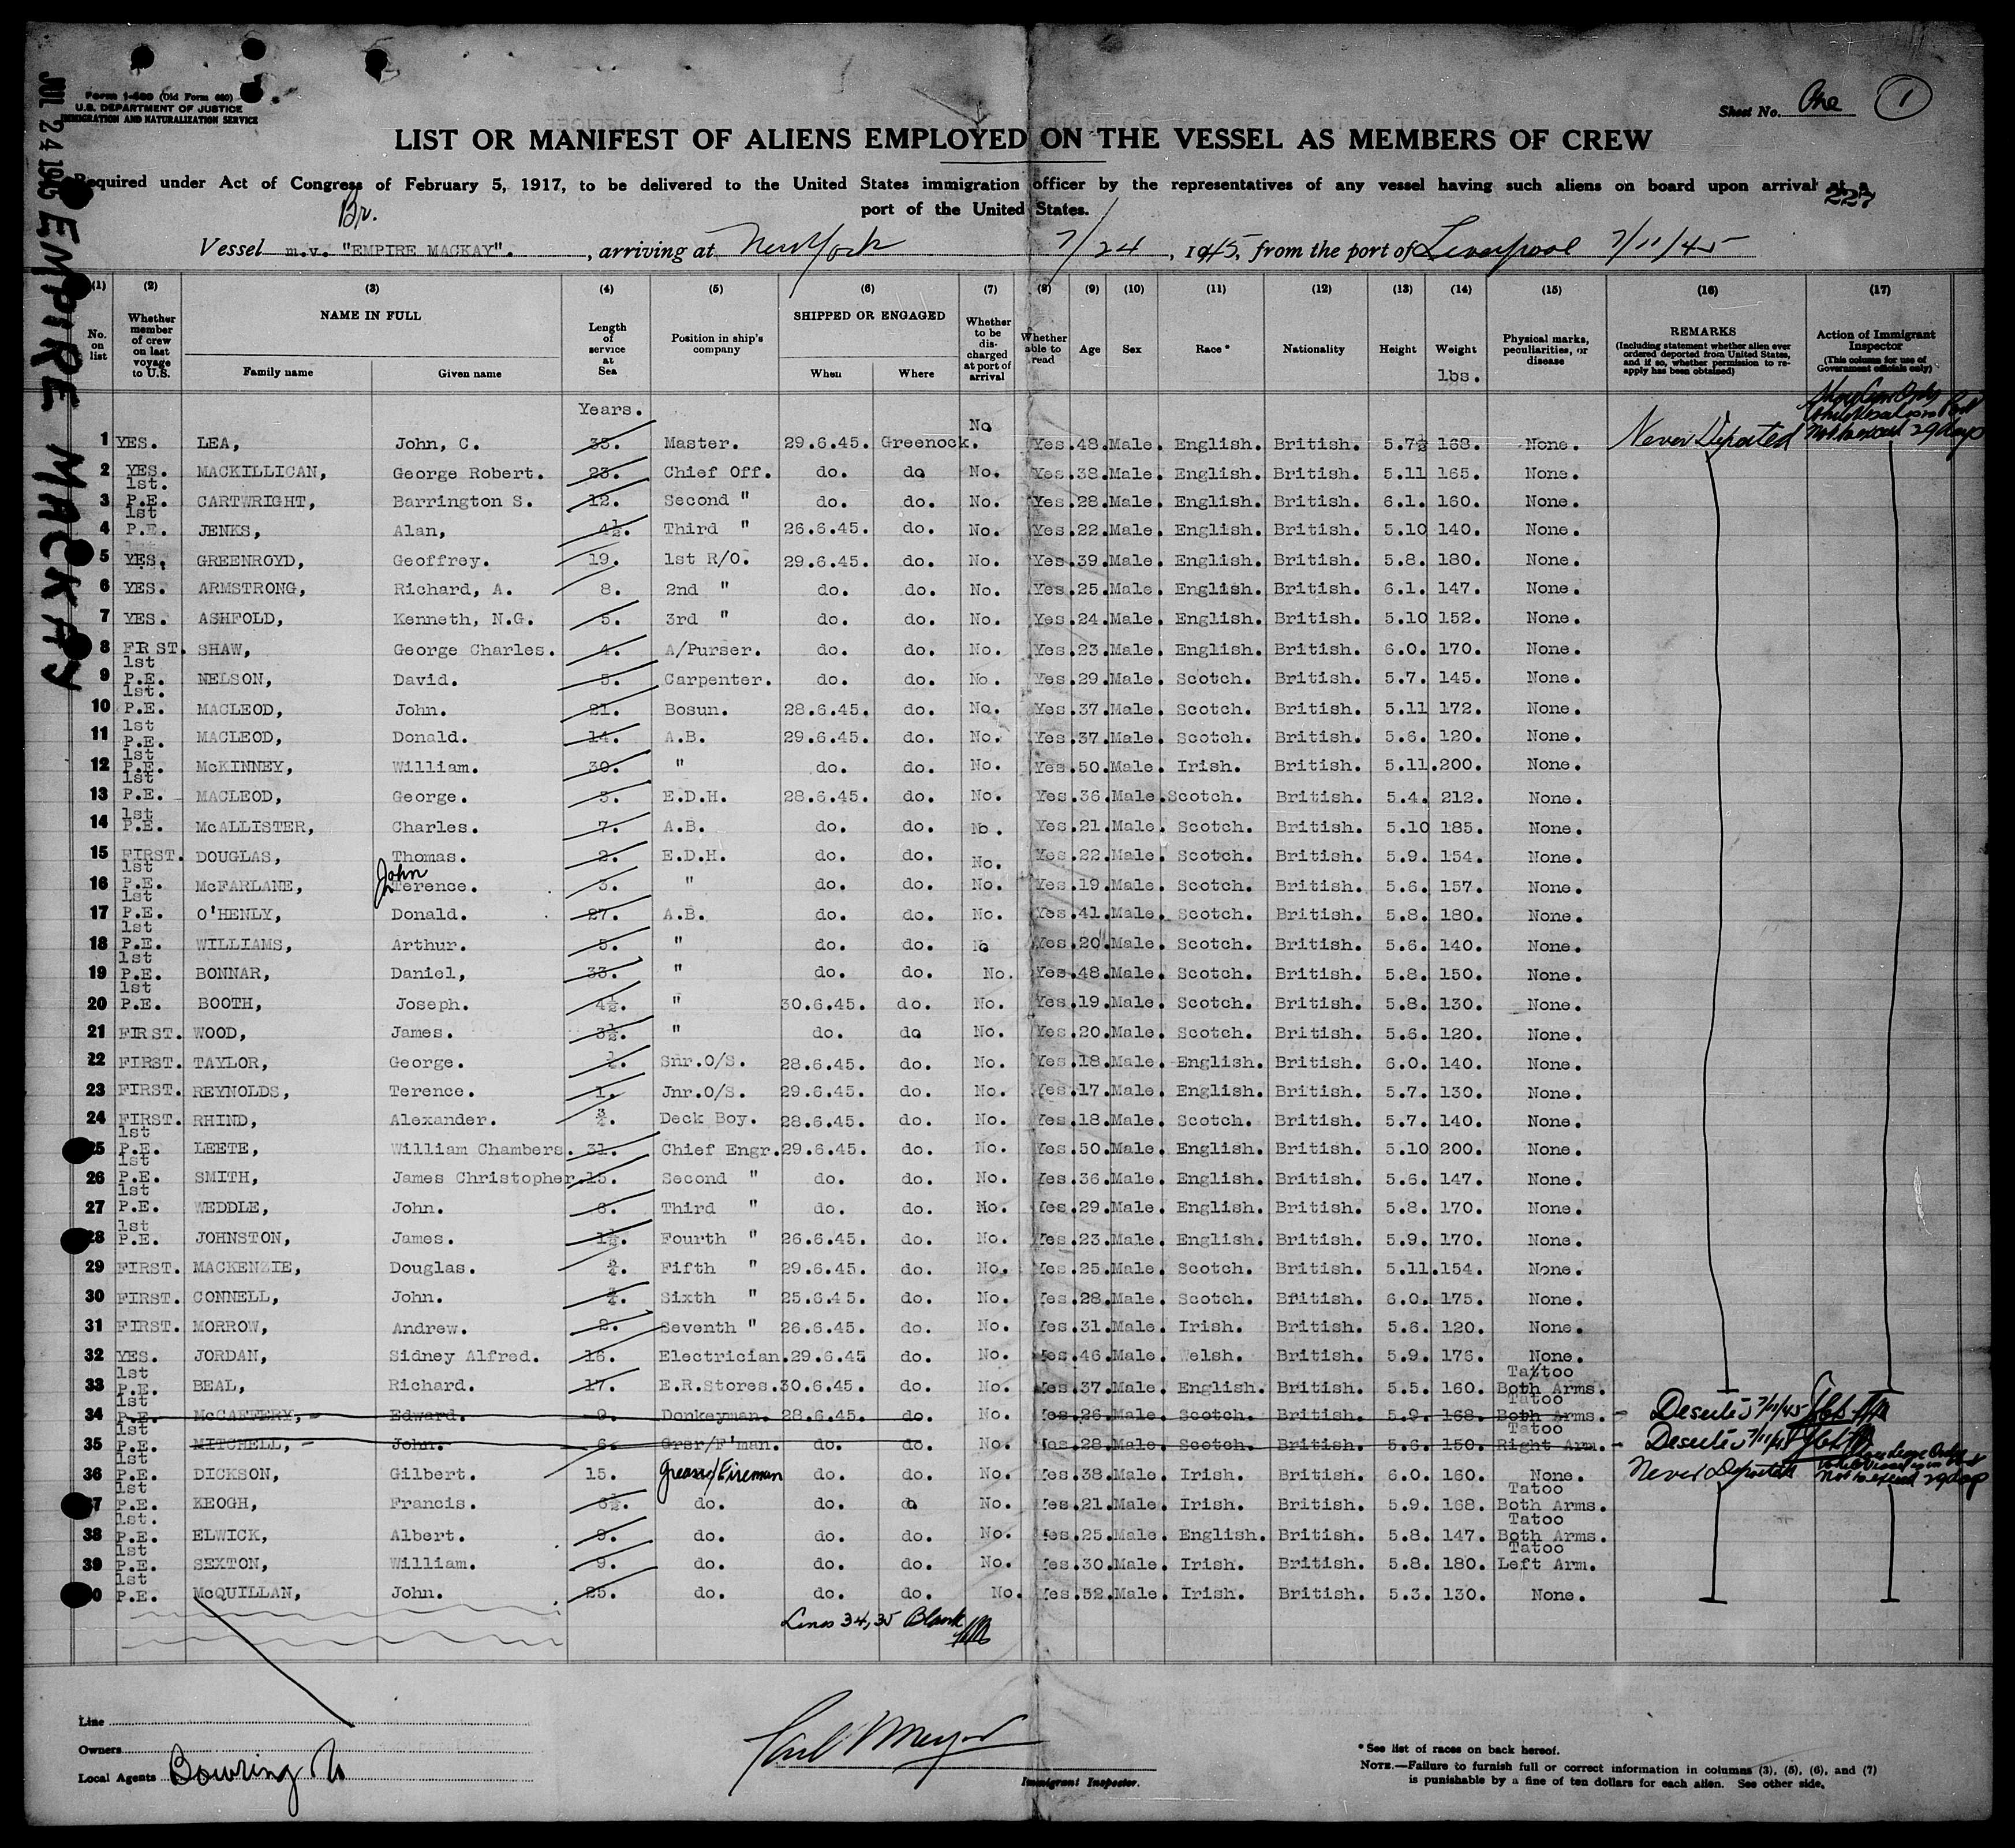 JUL 24 1945 EMPIRE MACKAY
Form I-480 (Old Form 680)
U.S. DEPARTMENT OF JUSTICE
IMMIGRATION AND NATURALIZATION SERVICE
Sheet No. One 1
LIST OR MANIFEST OF ALIENS EMPLOYED ON THE VESSEL AS MEMBERS OF CREW
Required under Act of Congress of February 5, 1917, to be delivered to the United States immigration officer by the representatives of any vessel having such aliens on board upon arrival at a
port of the United States.
227
Br.
Vessel m.v. "EMPIRE MACKAY". , arriving at New York 7/24 , 1945, from the port of Liverpool 7/11/45
(1) (2) (3) (4) (5) (6) (7) (8) (9) (10) (11) (12) (13) (14) (15) (16) (17)
No. on list Whether member of crew on last voyage to U.S. NAME IN FULL Family name Given name Length of service at Sea Position in ship's company SHIPPED OR ENGAGED When Where Whether to be discharged at port of arrival Whether able to read Age Sex Race * Nationality Height Weight lbs. Physical marks, peculiarities, or disease REMARKS (Including statement whether alien ever ordered deported from United States, and if so, whether permission to re-apply has been obtained) Action of Immigrant Inspector (This column for use of Government officials only)
Years.
1 YES. LEA, John, C. 35. Master. 29.6.45. Greenock. No Yes. 48. Male. English. British. 5.7½ 168. None. Never Deported Not to exceed 29 days
2 YES. MACKILLICAN, George Robert. 23. Chief Off. do. do No. Yes. 38. Male. English. British. 5.11 165. None.
3 1st. P.E. CARTWRIGHT, Barrington S. 12. Second " do. do. No. Yes. 28. Male. English. British. 6.1. 160. None.
4 1st P.E. JENKS, Alan, 4½. Third " 26.6.45. do. No. Yes. 22. Male. English. British. 5.10 140. None.
5 YES. GREENROYD, Geoffrey. 19. 1st R/O. 29.6.45. do. No. Yes. 39. Male. English. British. 5.8. 180. None.
6 YES. ARMSTRONG, Richard, A. 8. 2nd " do. do. No. Yes. 25. Male. English. British. 6.1. 147. None.
7 YES. ASHFOLD, Kenneth, N.G. 5. 3rd " do. do. No. Yes. 24. Male. English. British. 5.10 152. None.
8 FRST. SHAW, George Charles. 4. A/Purser. do. do. No. Yes. 23. Male. English. British. 6.0. 170. None.
9 1st P.E. NELSON, David. 5. Carpenter. do. do. No. Yes. 29. Male. Scotch. British. 5.7. 145. None.
10 1st. P.E. MACLEOD, John. 21. Bosun. 28.6.45. do. No. Yes. 37. Male. Scotch. British. 5.11 172. None.
11 1st P.E. MACLEOD, Donald. 14. A.B. 29.6.45. do. No. Yes. 37. Male. Scotch. British. 5.6. 120. None.
12 1st P.E. McKINNEY, William. 30. " do. do. No. Yes. 50. Male. Irish. British. 5.11. 200. None.
13 1st P.E. MACLEOD, George. 3. E.D.H. 28.6.45. do. No. Yes. 36. Male. Scotch. British. 5.4. 212. None.
14 1st P.E. McALLISTER, Charles. 7. A.B. do. do. No. Yes. 21. Male. Scotch. British. 5.10 185. None.
15 FIRST. DOUGLAS, Thomas. 2. E.D.H. do. do. No. Yes. 22. Male. Scotch. British. 5.9. 154. None.
16 1st P.E. McFARLANE, John Terence. 3. " do. do. No. Yes. 19. Male. Scotch. British. 5.6. 157. None.
17 1st P.E. O'HENLY, Donald. 27. A.B. do. do. No. Yes. 41. Male. Scotch. British. 5.8. 180. None.
18 1st P.E. WILLIAMS, Arthur. 5. " do. do. No Yes. 20. Male. Scotch. British. 5.6. 140. None.
19 1st P.E. BONNAR, Daniel, 33. " do. do. No. Yes. 48. Male. Scotch. British. 5.8. 150. None.
20 1st P.E. BOOTH, Joseph. 4½. " 30.6.45. do. No. Yes. 19. Male. Scotch. British. 5.8. 130. None.
21 FIRST. WOOD, James. 3½. " do. do No. Yes. 20. Male. Scotch. British. 5.6. 120. None.
22 FIRST. TAYLOR, George. ½. Snr.O/S. 28.6.45. do. No. Yes. 18. Male. English. British. 6.0. 140. None.
23 FIRST. REYNOLDS, Terence. 1. Jnr.O/S. 29.6.45. do. No. Yes. 17. Male. English. British. 5.7. 130. None.
24 FIRST. RHIND, Alexander. ¾. Deck Boy. 28.6.45. do. No. Yes. 18. Male. Scotch. British. 5.7. 140. None.
25 1st P.E. LEETE, William Chambers. 31. Chief Engr. 29.6.45. do. No. Yes. 50. Male. English. British. 5.10 200. None.
26 1st P.E. SMITH, James Christopher. 15. Second " do. do. No. Yes. 36. Male. English. British. 5.6. 147. None.
27 1st P.E. WEDDLE, John. 8. Third " do. do. No. Yes. 29. Male. English. British. 5.8. 170. None.
28 1st P.E. JOHNSTON, James. 1½. Fourth " 26.6.45. do. No. Yes. 23. Male. English. British. 5.9. 170. None.
29 FIRST. MACKENZIE, Douglas. ¾. Fifth " 29.6.45. do. No. Yes. 25. Male. Scotch. British. 5.11. 154. None.
30 FIRST. CONNELL, John. ¾. Sixth " 25.6.45. do. No. Yes. 28. Male. Scotch. British. 6.0. 175. None.
31 FIRST. MORROW, Andrew. 2. Seventh " 26.6.45. do. No. Yes. 31. Male. Irish. British. 5.6. 120. None.
32 YES. JORDAN, Sidney Alfred. 16. Electrician. 29.6.45 do. No. Yes. 46. Male. Welsh. British. 5.9. 176. None.
33 1st P.E. BEAL, Richard. 17. E.R.Stores. 30.6.45. do. No. Yes. 37. Male. English. British. 5.5. 160. Tattoo Both Arms.
34 1st P.E. McCAFFERY, Edward. 9. Donkeyman. 28.6.45. do. No. Yes. 26. Male. Scotch. British. 5.9. 168. Tatoo Both Arms. Deserted 7/11/45
35 1st P.E. MITCHELL, John. 6. Grsr/F'man. do. do. No. Yes. 28. Male. Scotch. British. 5.6. 150. Tatoo Right Arm. Deserted 7/11/45
36 1st P.E. DICKSON, Gilbert. 15. Greaser/Fireman do. do. No. Yes. 38. Male. Irish. British. 6.0. 160. None. Never Deported Not to exceed 29 days
37 1st P.E. KEOGH, Francis. 3½. do. do. do No. Yes. 21. Male. Irish. British. 5.9. 168. Tatoo Both Arms.
38 1st. P.E. ELWICK, Albert. 9. do. do. do. No. Yes. 25. Male. English. British. 5.8. 147. Tatoo Both Arms.
39 1st P.E. SEXTON, William. 9. do. do. do. No. Yes. 30. Male. Irish. British. 5.8. 180. Tatoo Left Arm.
40 1st P.E. McQUILLAN, John. 25. do. do. do. No. Yes. 52. Male. Irish. British. 5.3. 130. None.
Lines 34, 35 Blank
Line
Owners
Local Agents Bowring Co
Carl Meyer
Immigrant Inspector.
* See list of races on back hereof.
NOTE.—Failure to furnish full or correct information in columns (3), (5), (6), and (7)
is punishable by a fine of ten dollars for each alien. See other side.